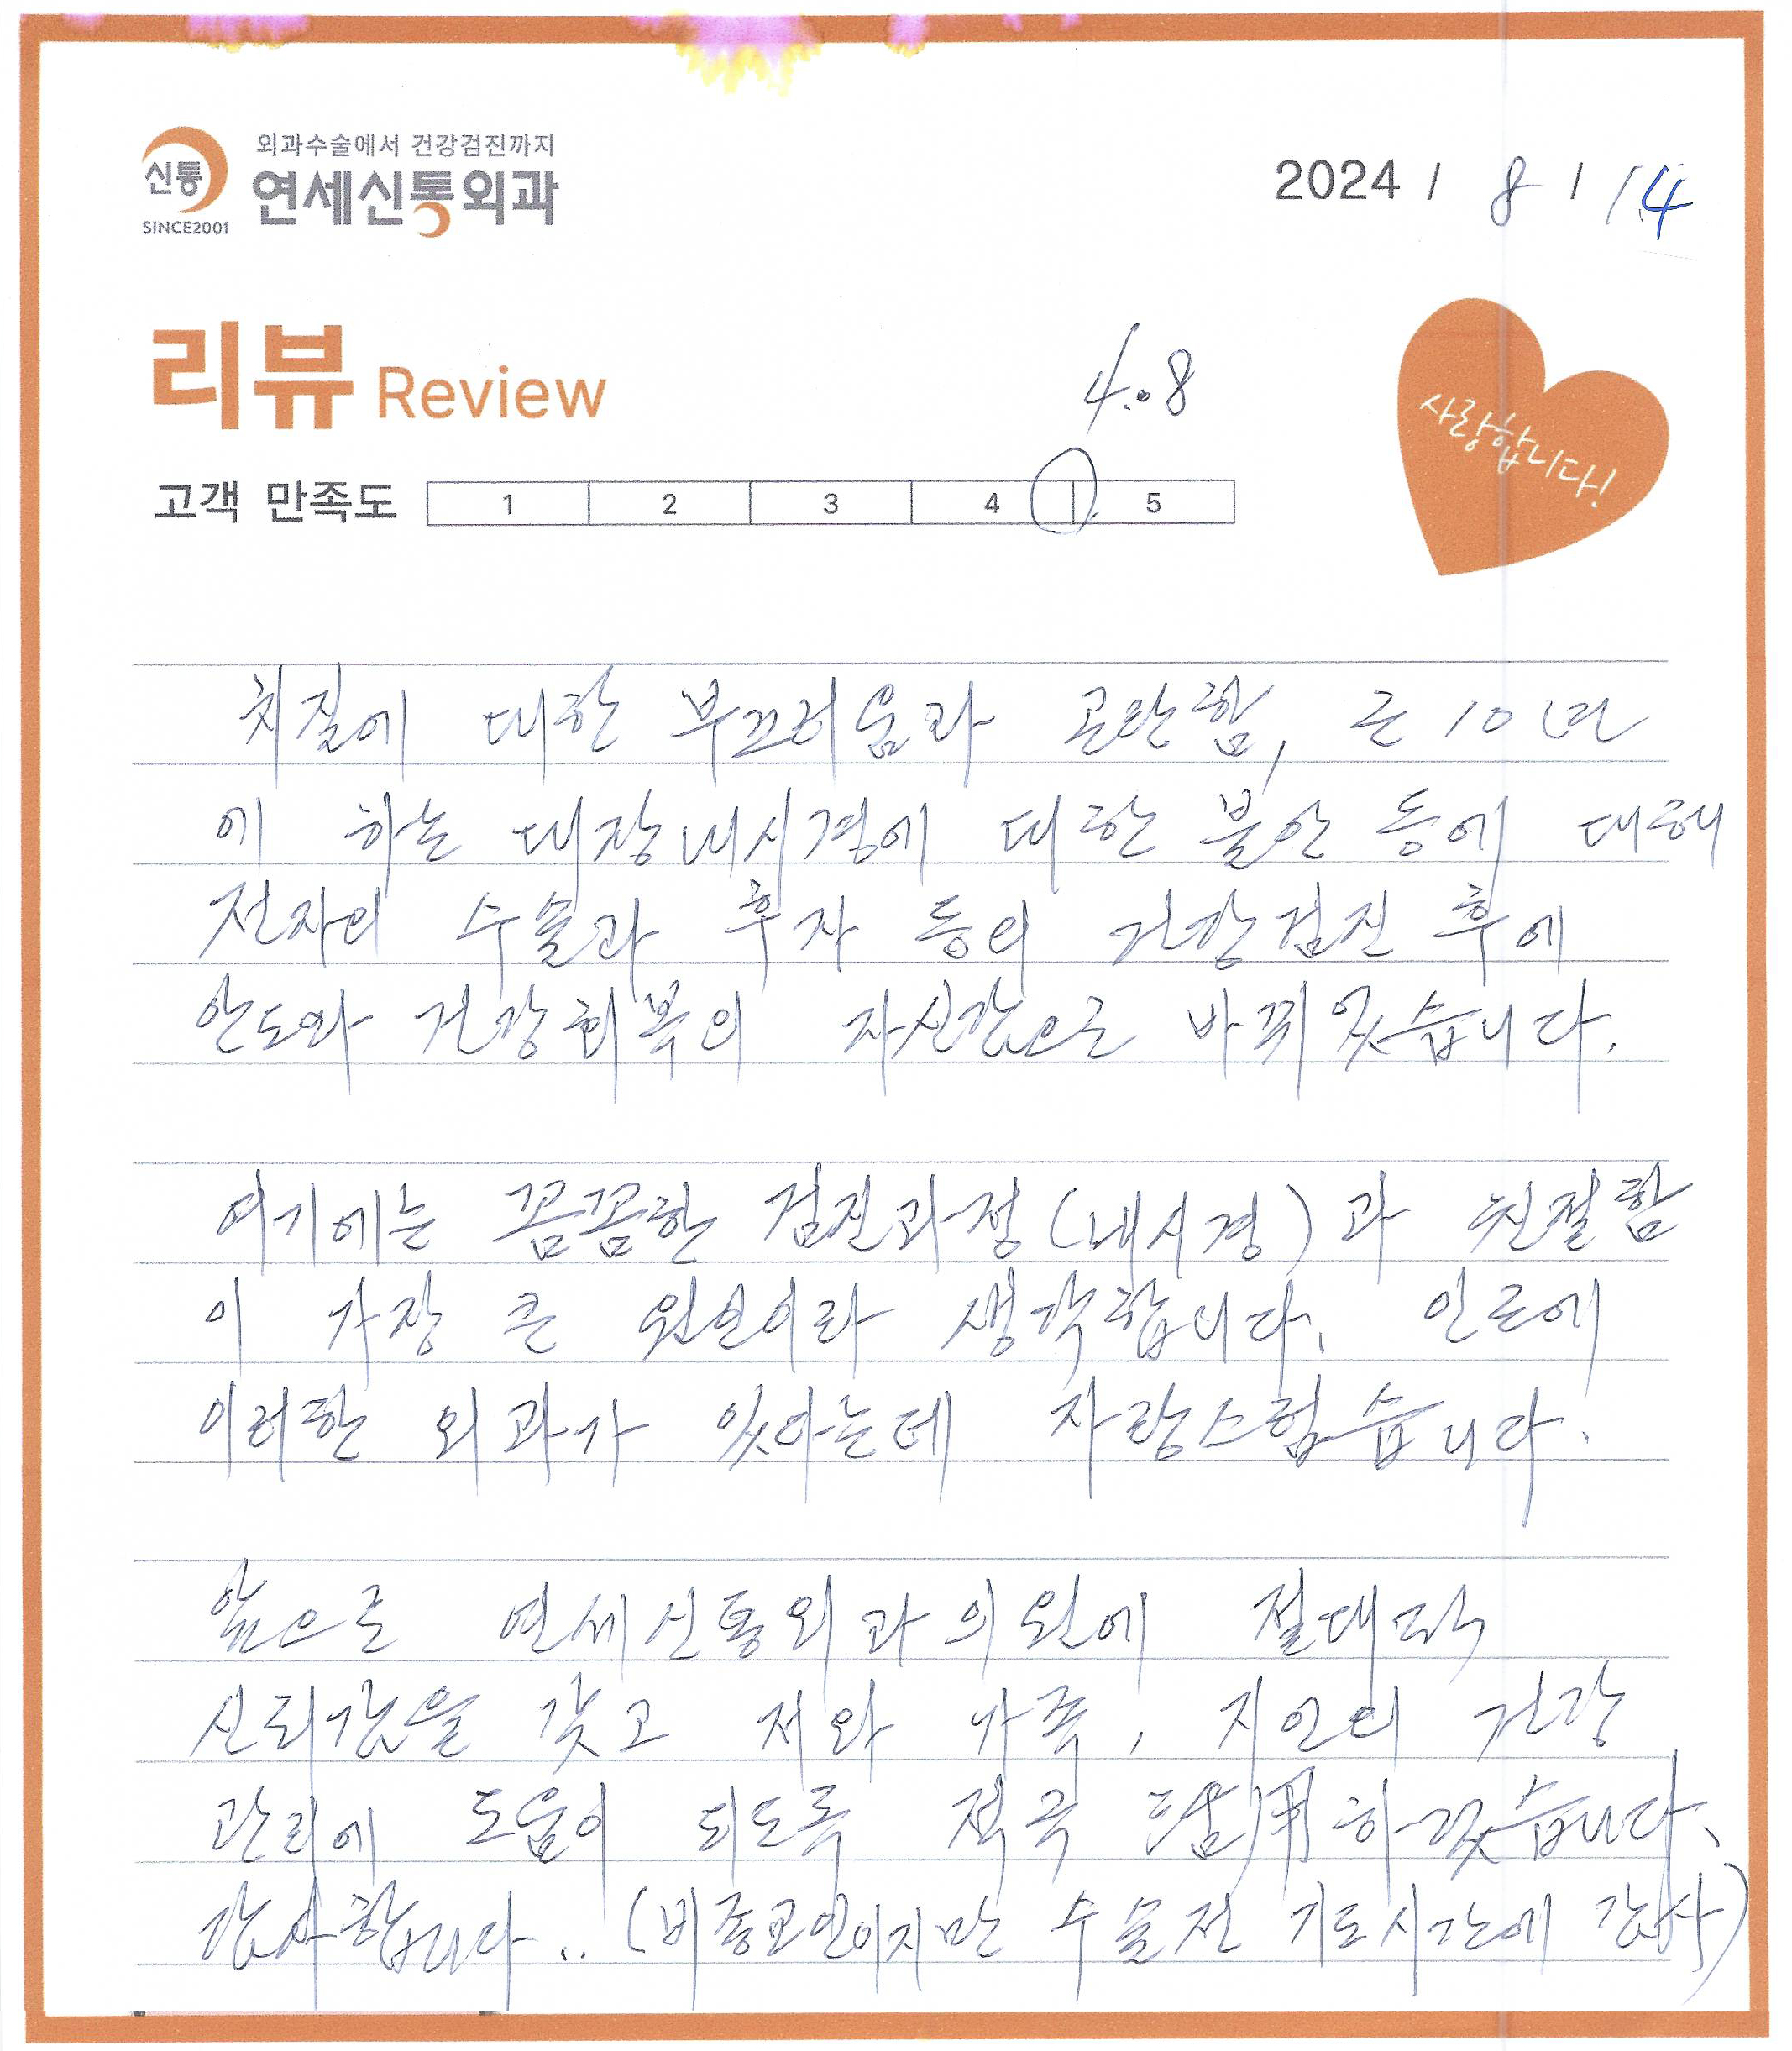 외과수술에서 건강검진까지
신통 연세신통외과
SINCE2001
2024 / 8 / 14
리뷰 Review
4.8
사랑합니다!
고객 만족도 1 2 3 4 5
치질에 대한 부끄러움과 곤란함, 근 10년
에 하는 대장내시경에 대한 불안 등에 대해
전자의 수술과 후자 등의 건강검진 후에
안도와 건강회복의 자신감으로 바뀌었습니다.
여기에는 꼼꼼한 검진과정(내시경)과 친절함
이 가장 큰 원인이라 생각합니다. 인근에
이러한 외과가 있다는데 자랑스럽습니다.
앞으로 연세신통외과의원에 절대적
신뢰감을 갖고 저와 가족, 지인의 건강
관리에 도움이 되도록 적극 活用하겠습니다.
감사합니다.. (비종교인이지만 수술전 기도시간에 감사)